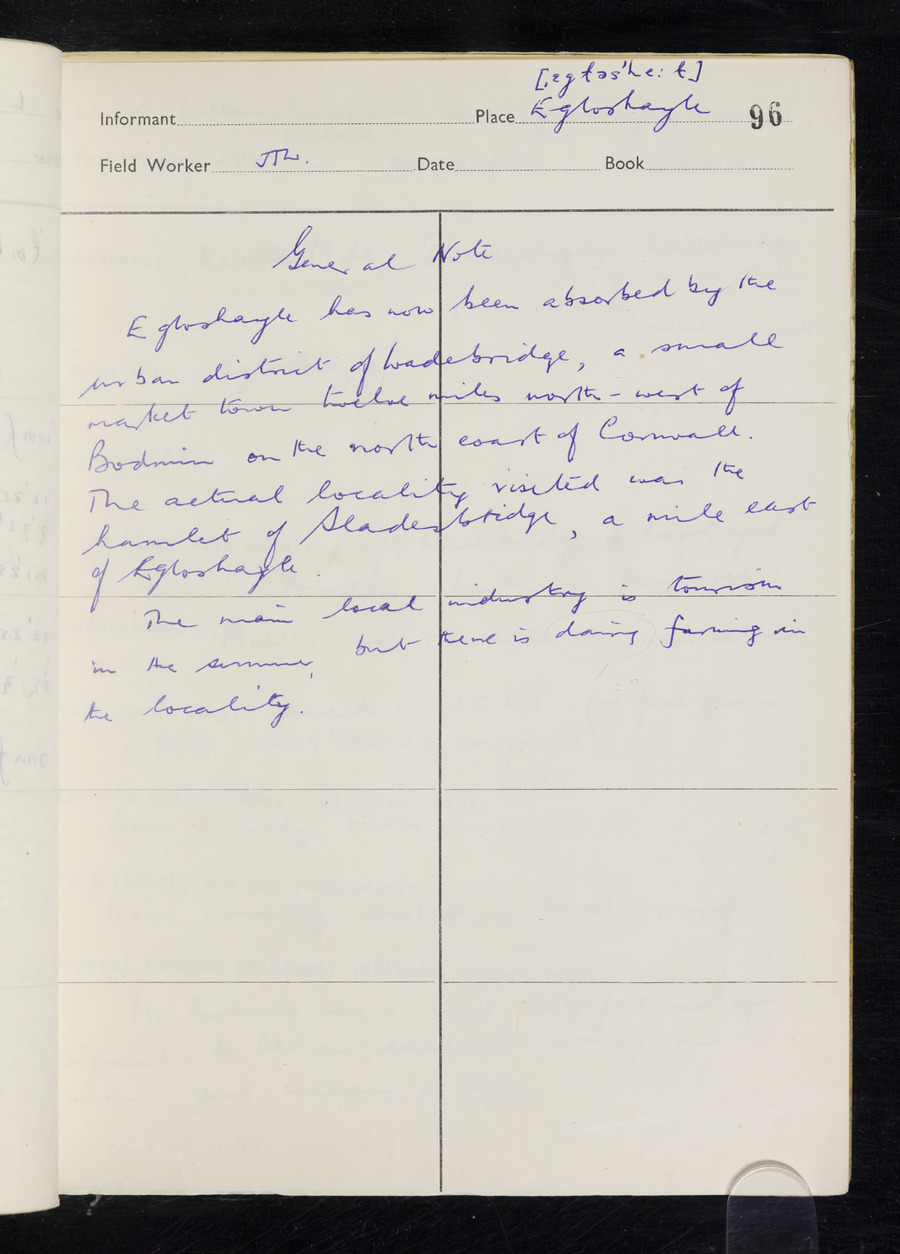 [ˌegłəs'heːł]
Informant Place Egloshayle 96
Field Worker JTW. Date Book
General Note
Egloshayle has now been absorbed by the
urban district of Wadebridge, a small
market town twelve miles north-west of
Bodmin on the north coast of Cornwall.
The actual locality visited was the
hamlet of Sladesbridge, a mile east
of Egloshayle.
The main local industry is tourism
in the summer, but there is dairy farming in
the locality.